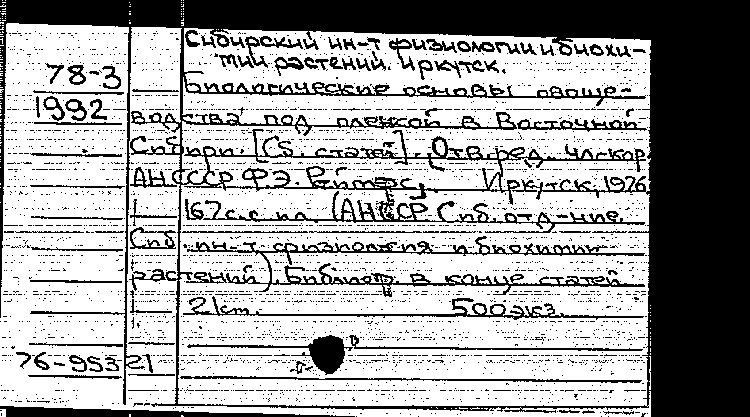 Сибирский ин-т физиологии и биохи-
мии растений. Иркутск.
78-3
Биологические основы овоще-
1992
водства под пленкой в Восточной
Сибири. [Сб. статей]. (Отв. ред. чл-кор.
АН СССР Ф.Э. Реймерс). Иркутск, 1976.
167 с. с ил. (АН СССР Сиб. отд-ние.
Сиб. ин-т физиологии и биохимии
растений) Библиогр. в конце статей
21 cm. 500 экз.
76-95321